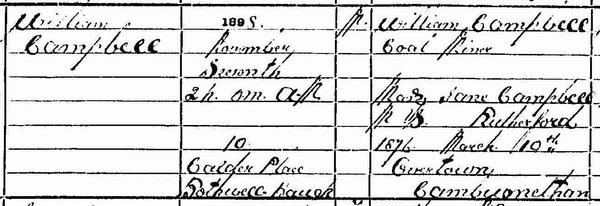 William
Campbell
1898.
November
Seventh
2h. 0m. A.M.
10
Calder Place
Bothwell-Haugh
M.
William Campbell
Coal Miner
Mary Jane Campbell
M. S. Rutherford
1876 March 10th
Overtown
Cambusnethan